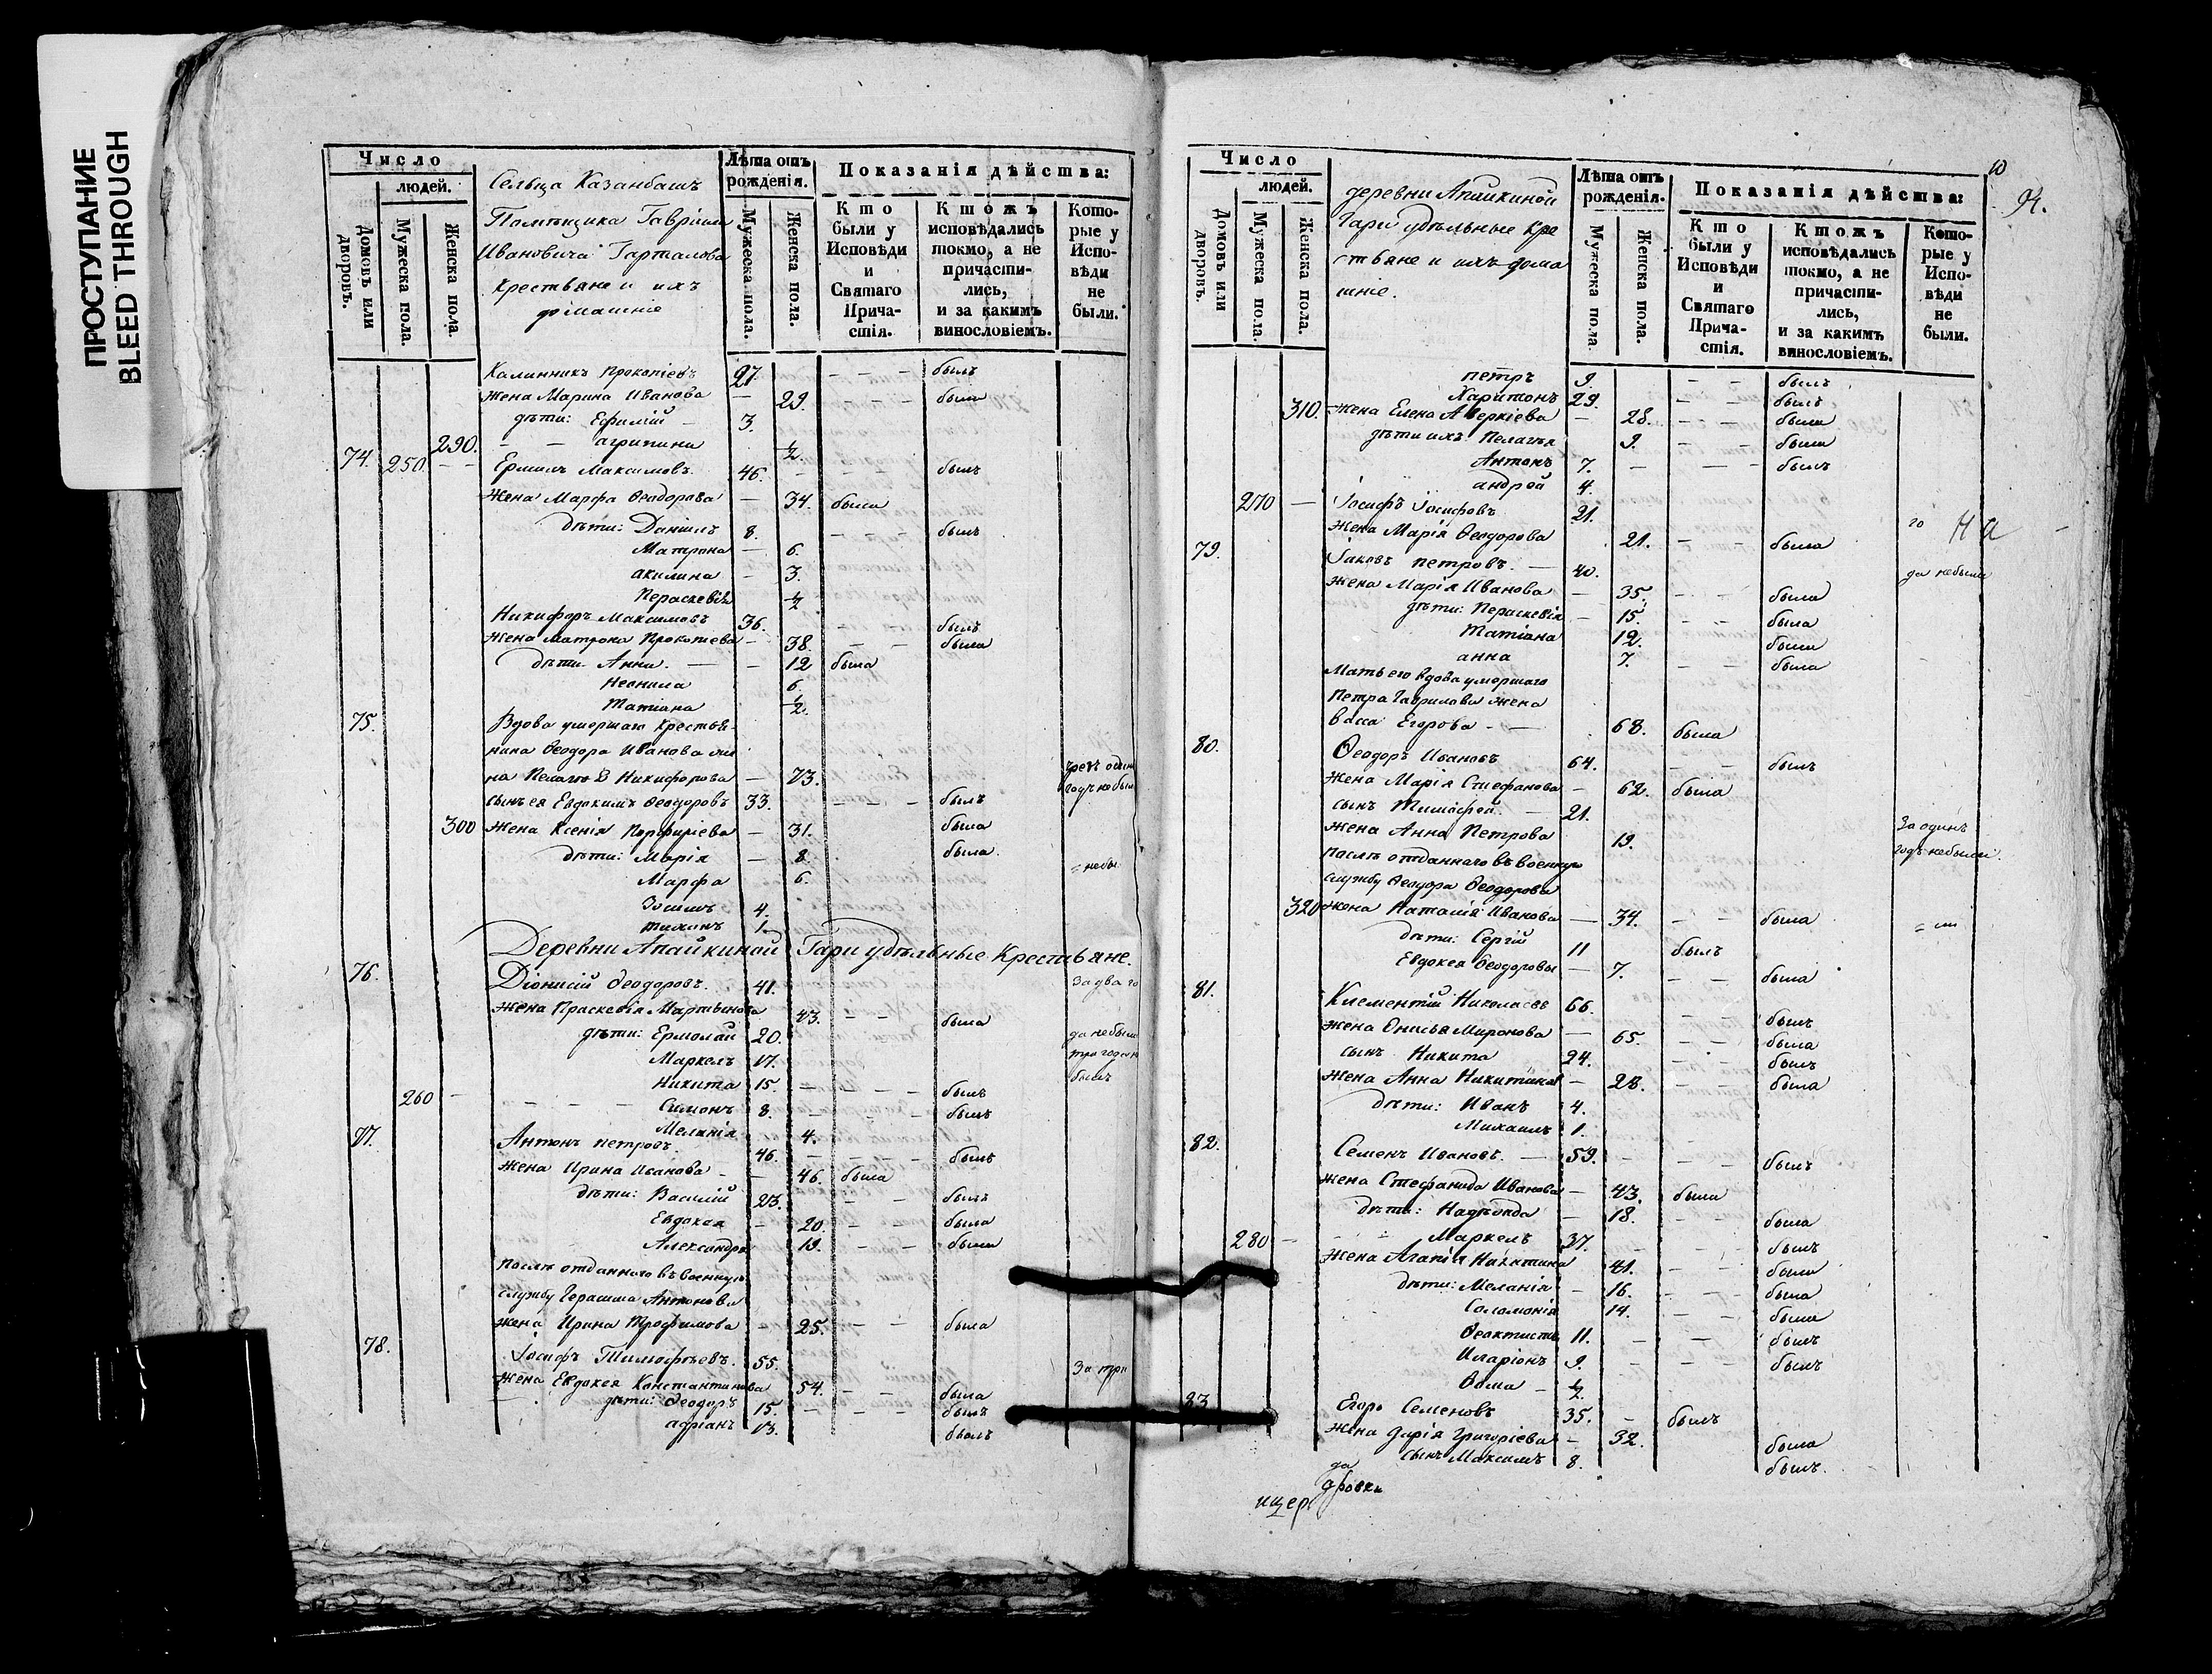 ПРОСТУПАНИЕ
BLEED THROUGH
Число
людей.
Домовъ или дворовъ.
Мужеска пола.
Женска пола.
Сельца Казанбашъ
Помѣщика Гавріила
Ивановича Гарталова
крестьяне и ихъ
домашніе
Лѣта отъ рожденія.
Мужеска пола.
Женска пола.
Показанія дѣйства:
Кто были у Исповѣди и Святаго Причастія.
Ктожъ исповѣдались токмо, а не причастились, и за какимъ винословіемъ.
Которые у Исповѣди не были.
Калинникъ Прокопіевъ 27. – – – былъ
жена Марина Иванова – 29. – – – была
дѣти: Ефимій – 3.
290. – – агрипина ½.
74. 250. – – Ермилъ Максимовъ 46. – – былъ
жена Марфа Ѳеодорова – 34. была
дѣти: Даніилъ 8. – – былъ
Матрона – 6.
акилина – 3.
Параскевія ½
Никифоръ Максимовъ 36. – – былъ
жена Матрона Прокопіева – 38. – – была
дѣти Анна. – – 12 была
Неонила 6.
Татиана ½.
75. Вдова умершаго крестья-
нина Ѳеодора Иванова же
на Пелагѣя Никифорова – 73.
сынъ ея Евдокимъ Ѳеодоровъ 33. – – – былъ годъ небыл
300 жена Ксенія Порфиріева – 31. была
дѣти: Марія – 8. была.
Марфа 6. = небы
Зосимъ 4.
тихонъ 1.
Деревни Апайкиной Гари удѣльные Крестьяне.
76. Діонисій Ѳеодоровъ. 41. За два го
жена Праскевія Мартынова 43. – – была
дѣти: Ермолай 20. да небыли
Маркелъ 17. три года н
Никита 15. – – – былъ былъ
260 – – – – – Симонъ 8. – – – былъ
Меланія 4.
77. Антонъ петровъ. 46. – – – былъ
жена Ирина Иванова – 46. была
дѣти: Василій 23. – – былъ
Евдокея – 20. – – была
Александра 19. – – была
послѣ отданнаго въ военную
службу Герасима Антонова
жена Ирина Трофимова – 25. – – была
78. Іосифъ Тимофѣевъ. 55. За три
жена Евдокея Константинова 54. – – была
дѣти: Ѳеодоръ 15. – – – былъ
адріанъ 13. былъ
10
94.
Число
людей.
Домовъ или дворовъ.
Мужеска пола.
Женска пола.
деревни Апайкиной
Гари удѣльные кре
стьяне и ихъ дома
шніе.
Лѣта отъ рожденія.
Мужеска пола.
Женска пола.
Показанія дѣйства:
Кто были у Исповѣди и Святаго Причастія.
Ктожъ исповѣдались токмо, а не причастились, и за какимъ винословіемъ.
Которые у Исповѣди не были.
петръ 9. – – былъ
Харитонъ 29. – – былъ
310. жена Елена Аверкіева – 28. – – была
дѣти ихъ Пелагѣя 9. – – была
Антонъ 7. – – – былъ
андрей 4.
270 – Іосифъ Іосифовъ 21. го на
жена Марія Ѳеодорова 21. – – была
79. Іаковъ петровъ. – 40. да небыли
жена Марія Иванова – 35. – – была
дѣти: Пераскевія – 15. – – была
Татіана 12. была
анна 7. – – была
Мать его вдова умершаго
Петра Гаврилова жена
Васса Егорова – – 68. была
80. Ѳеодоръ Ивановъ 64. – – былъ
жена Марія Стефанова – 62. была
сынъ Тимофей. – 21.
жена Анна Петрова 19. За одинъ
послѣ отданнаго въ военную годъ небыли.
службу Ѳеодора Ѳеодорова
320 жена Наталія Иванова – 34. – – была
дѣти: Сергій 11 былъ
Евдокея Ѳеодоровы – 7. – – была
81. Климентій Николаевъ 66. – – былъ
жена Епистимія Миронова – 65. – – была
сынъ Никита 24. – – былъ
жена Анна Никитина – 28. – – была
дѣти: Иванъ 4.
Михаилъ 1.
82. Семенъ Ивановъ. – 59. – – былъ
жена Стефанида Иванова – 43. была
дѣти: Надѣжда – 18. – – была
280 – Маркелъ 37. былъ
жена Агапія Никитина 41. – – была
дѣти: Меланія – 16. – – была
Соломонія 14. – – была
Ѳеоктистъ 11. – – былъ
Иларіонъ 9. – – былъ
Ѳома – ½
83 Егоръ Семеновъ 35. – былъ
жена Дарія Григоріева – 32. была
сынъ Максимъ 8. былъ.